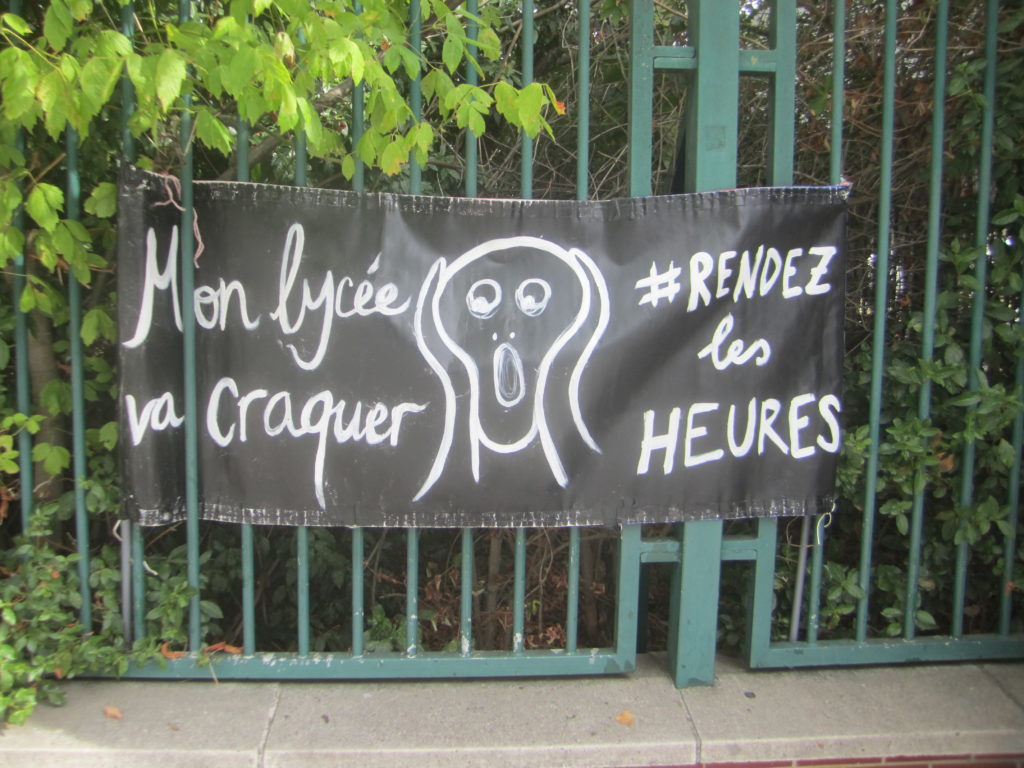 Mon lycée
va craquer
#RENDEZ
les
HEURES